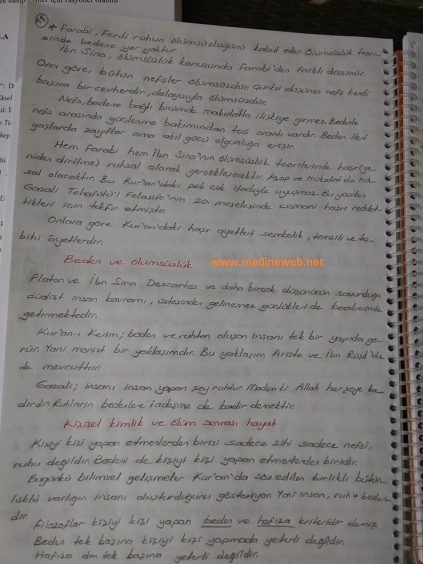 * Farabi, ferdi ruhun ölümsüzlüğünü kabul eder. Ölümsüzlük teori-
sinde bedene yer yoktur.
İbn Sina, ölümsüzlük konusunda Farabi'den farklı düşünür.
Ona göre, bütün nefsler ölümsüzdür. Çünkü düşünen nefs kendi
başına bir cevherdir, dolayısıyla ölümsüzdür.
Nefs, bedene bağlı biçimde makulatla ilişkiye girmez. Bedenle
nefs arasında güçlenme bakımından ters orantı vardır. Beden ileri
yaşlarda zayıflar ama akıl gücü olgunluğa erişir.
Hem Farabi hem İbn Sina'nın ölümsüzlük teorilerinde haşr(ye-
niden dirilme) ruhsal olarak gerçekleşecektir. Azap ve mükafat da ruh-
sal olacaktır. Bu Kur'an'daki pek çok ifadeyle uyuşmaz. Bu yüzden
Gazali Tehafütü'l Felasife'nin 20. meselesinde cismani haşrı reddet-
tikleri için tekfir etmiştir.
Onlara göre Kur'an'daki haşr ayetleri sembolik, temsili ve teş-
bihi ayetlerdir.
Beden ve ölümsüzlük
www.medineweb.net
Platon ve İbn Sina, Descartes ve daha birçok düşünürün savunduğu
düalist insan kavramı, üstesinden gelinemez güçlükleri de beraberinde
getirmektedir.
Kur'an-ı Kerim; beden ve ruhtan oluşan insanı tek bir yapıda gö-
rür. Yani monist bir yaklaşımdır. Bu yaklaşım Aristo ve İbn Rüşd'de
de mevcuttur.
Gazali; insanı insan yapan şey ruhtur. Madem ki Allah herşeye ka-
dirdir. Ruhların bedenlere iadesine de kadir demektir.
Kişisel kimlik ve ölüm sonrası hayat
Kişiyi kişi yapan etmenlerden birisi sadece zihi sadece nefsi,
ruhu değildir. Bedeni de kişiyi kişi yapan etmenlerden birisidir.
Bugünkü bilimsel gelişmeler Kur'an'da sözedilen birlikli
varlığın insanı oluşturduğunu gösteriyor. Yani insan, ruh + beden-
dir.
Filozoflar kişiyi kişi yapan beden ve hafıza kriteridir demiş.
Beden tek başına kişiyi kişi yapmada yeterli değildir.
Hafıza da tek başına yeterli değildir.